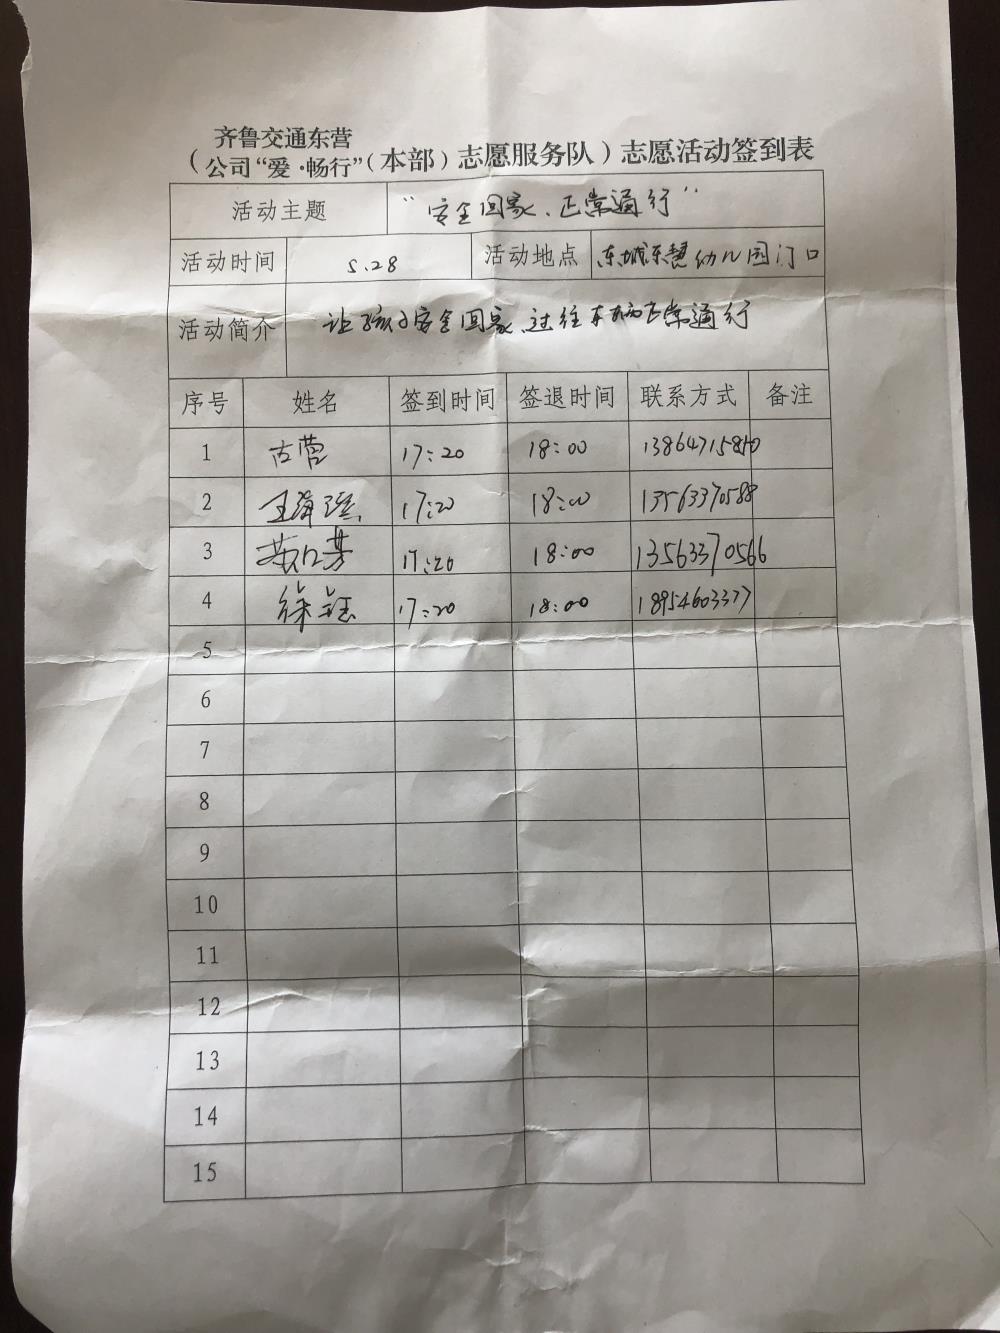 齐鲁交通东营
（公司“爱·畅行”（本部）志愿服务队）志愿活动签到表
活动主题 “安全回家、正常通行”
活动时间 5.28 活动地点 东城东慧幼儿园门口
活动简介 让孩子安全回家、过往车辆正常通行
序号 姓名 签到时间 签退时间 联系方式 备注
1 古营 17:20 18:00
2 17:20 18:00 13563370588
3 17:20 18:00 13563370566
4 徐钰 17:20 18:00 18954603377
5
6
7
8
9
10
11
12
13
14
15